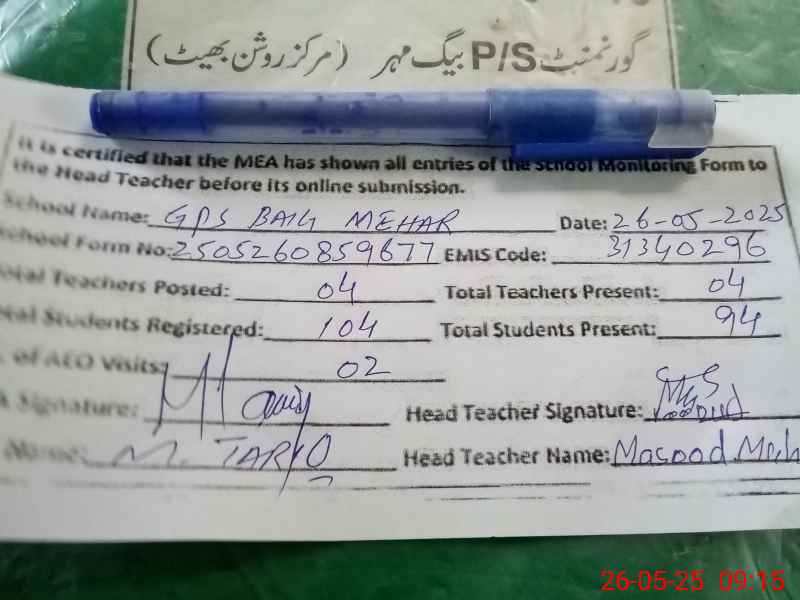 گورنمنٹ P/S بیگ مہر (مرکز روشن بھیٹ)
It is certified that the MEA has shown all entries of the School Monitoring Form to
the Head Teacher before its online submission.
School Name: GPS BAIG MEHAR Date: 26-05-2025
School Form No: 2505260859677 EMIS Code: 31340296
Total Teachers Posted: 04 Total Teachers Present: 04
Total Students Registered: 104 Total Students Present: 94
of AEO Visits: 02
Signature: Head Teacher Signature:
Name: M. TARIQ Head Teacher Name: Masood
26-05-25 09:15